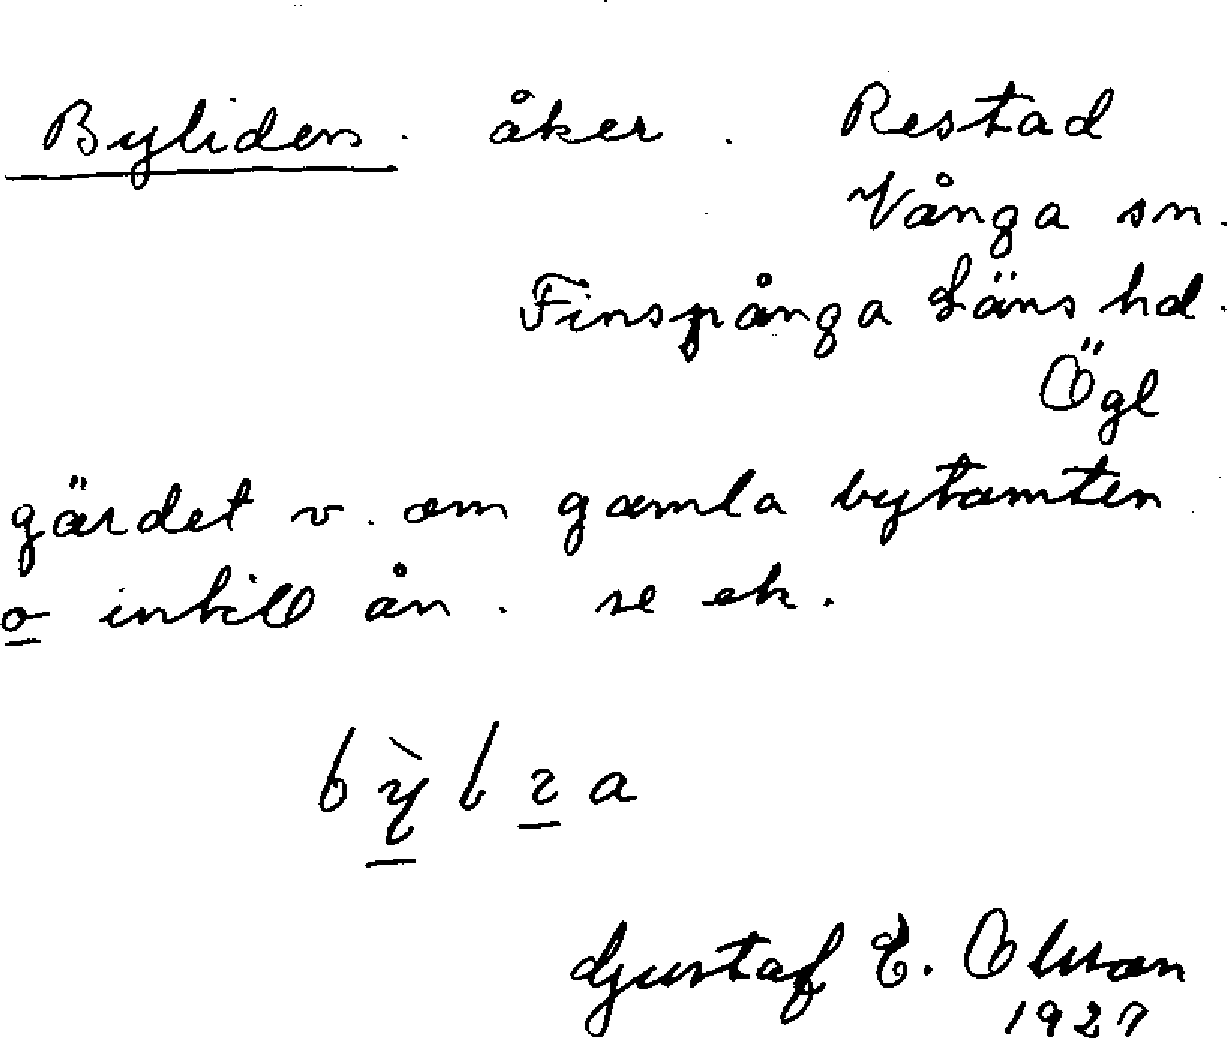 Byliden. åker. Restad
Vånga sn.
Finspånga Läns hd.
Ögl
gärdet v. om gamla bytomten
o intill ån. se ek.
Gustaf E. Olsson
1927